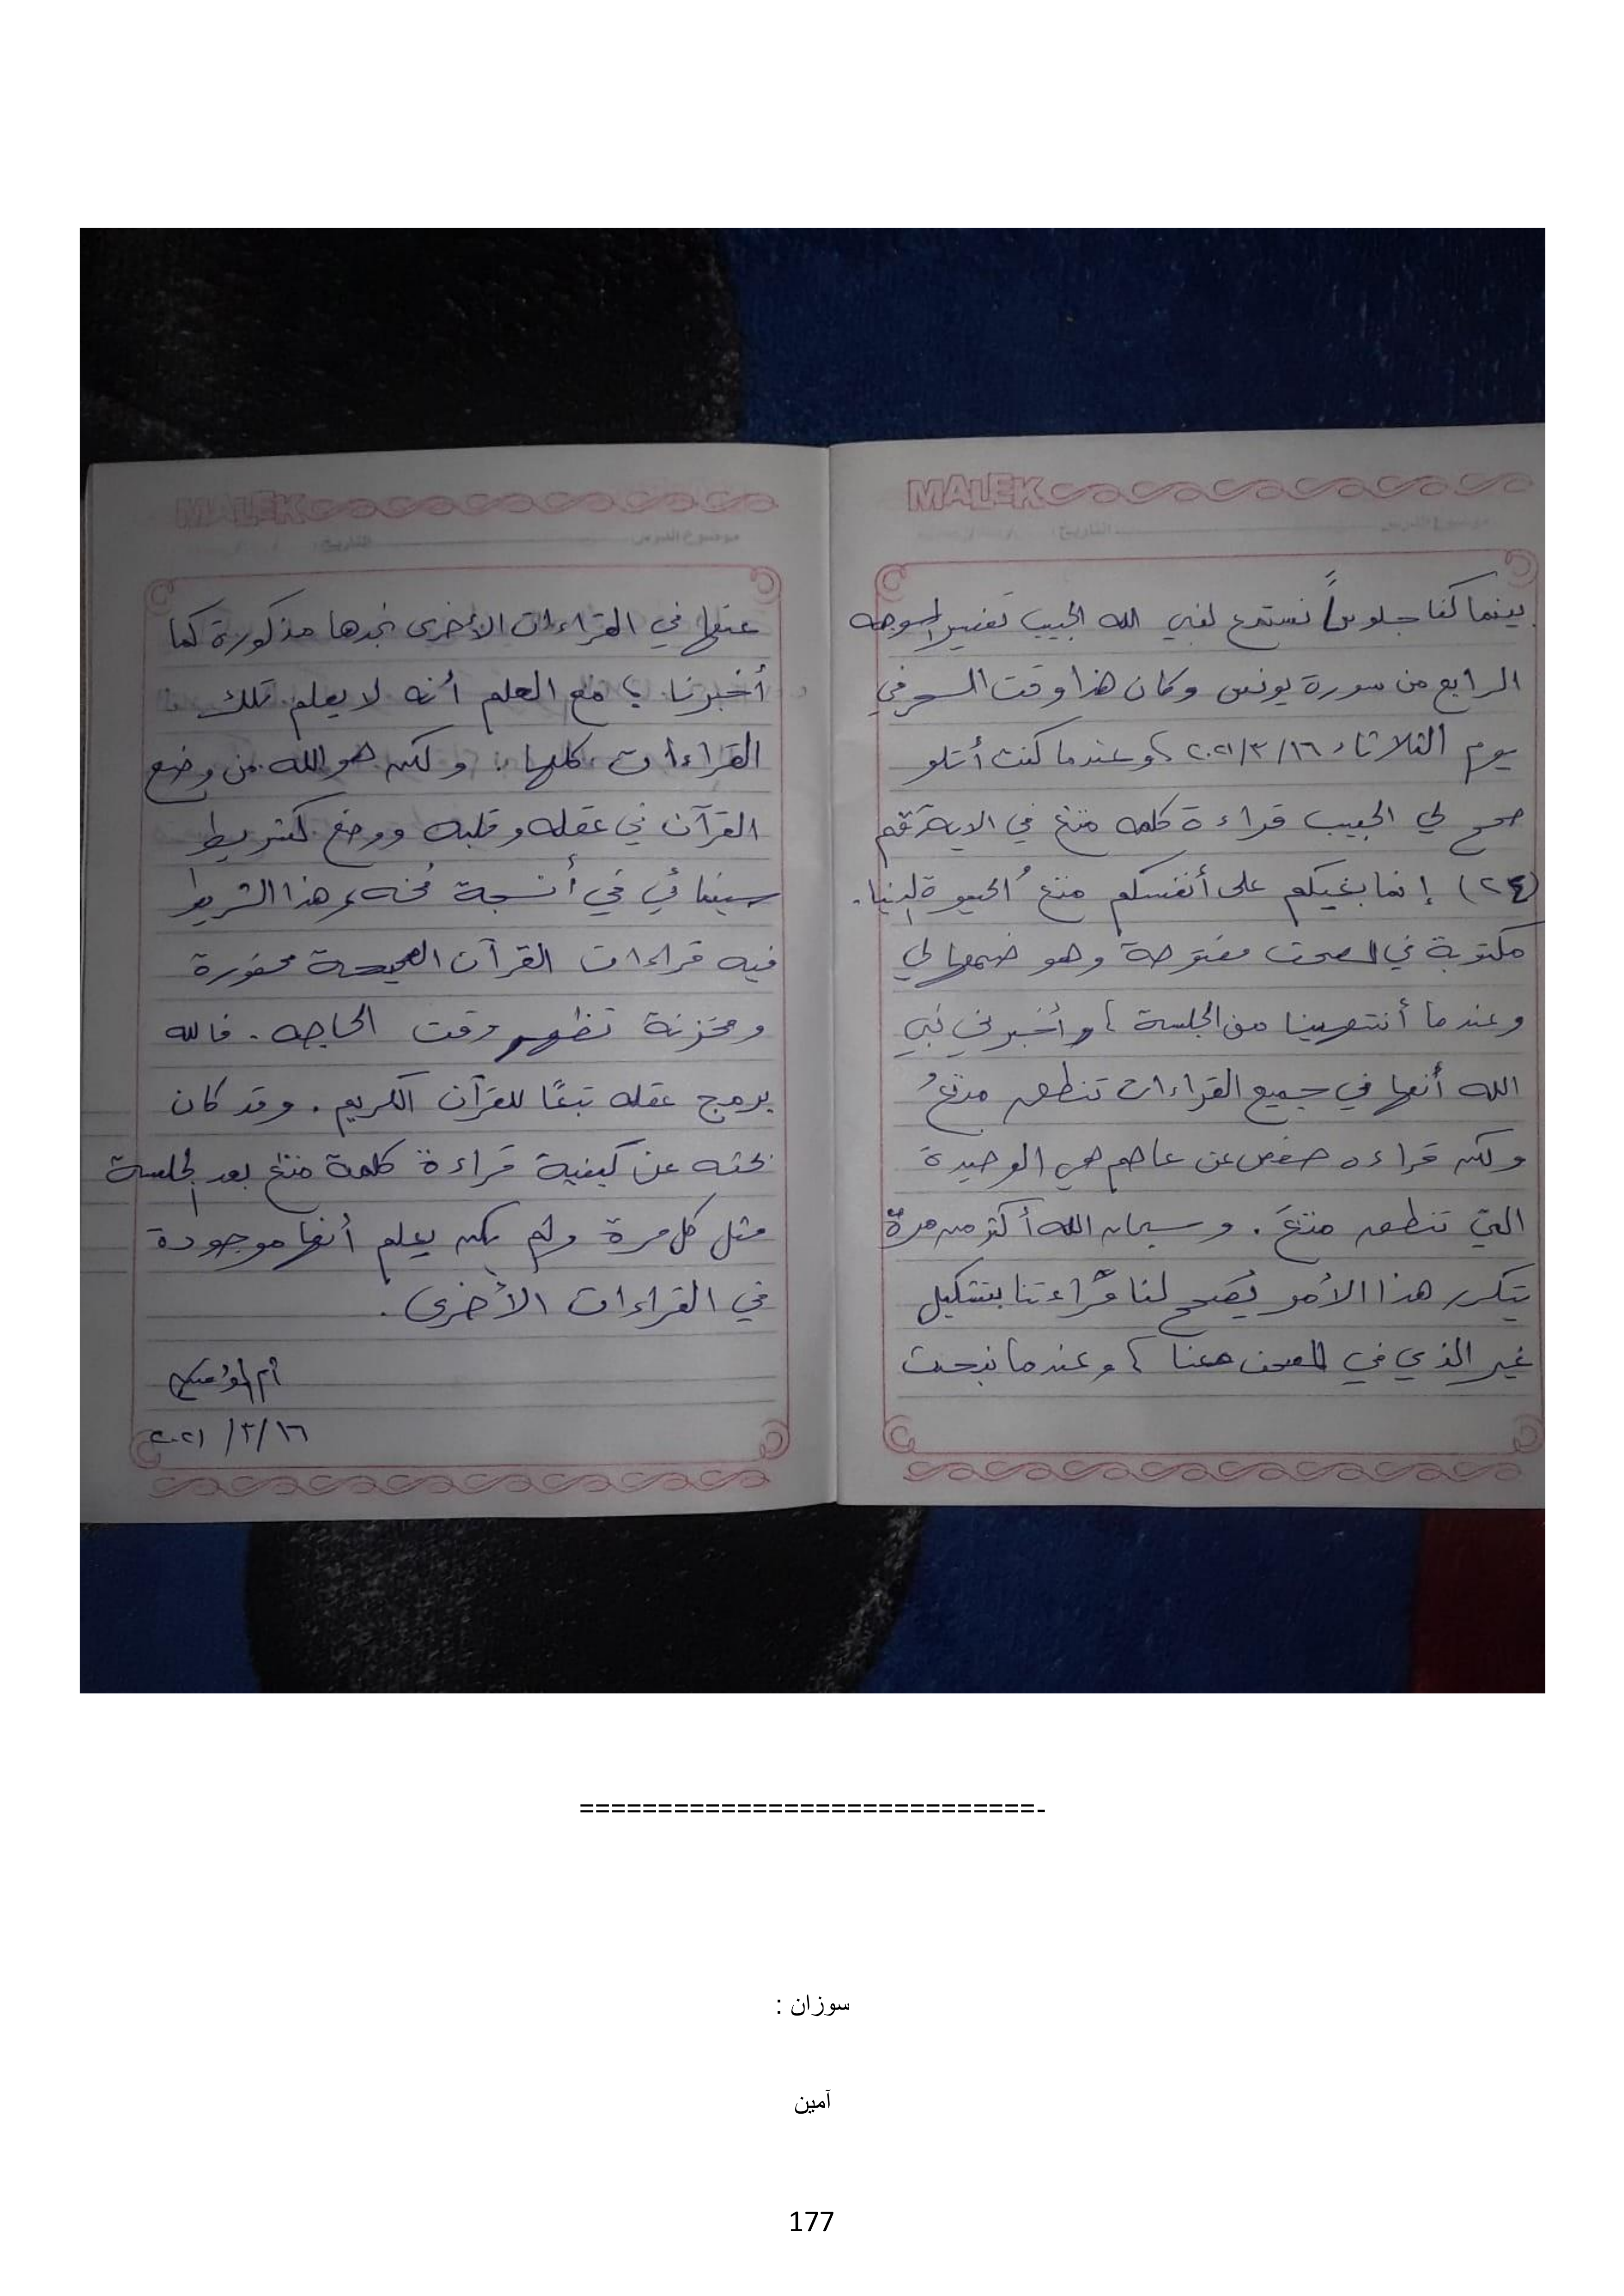 MALEK
موضوع الدرس التاريخ: / /
بينما كنا جلوساً نستمع لنبي الله الحبيب تفسير الوجه
الرابع من سورة يونس وكان هذا وقت السحر في
يوم الثلاثاء ١٦/٣/٢٠٢١، وعندما كنت أتلو
صحح لي الحبيب قراءة كلمه متع في الاية رقم
(٢٤) إنما بغيكم على أنفسكم متعُ الحيوة الدنيا.
مكتوبة في المصحف مفتوحة وهو ضمها لي
وعندما أنتهينا من الجلسة، وأخبرني نبي
الله أنها في جميع القراءات تنطق متعُ
ولكن قراءه حفص عن عاصم هي الوحيدة
التي تنطق متعَ. وسبحان الله أكثر من مرة
يتكرر هذا الأمر يُصحح لنا قراءتنا بتشكيل
غير الذي في المصحف معنا، وعندما نبحث
MALEK
موضوع الدرس التاريخ: / /
عنها في القراءات الأخرى نجدها مذكورة كما
أخبرنا، مع العلم أنه لا يعلم تلك
القراءات كلها. ولكن هو الله من وضع
القرآن في عقله وقلبه ووضع كشريط
سينمائي في أنسجة مُخه، هذا الشريط
فيه قراءات القرآن الصحيحة محفورة
ومخزنة تظهر وقت الحاجه. فالله
يبرمج عقله تبعًا للقرآن الكريم. وقد كان
بحثه عن كيفية قراءة كلمة متع بعد الجلسة
مثل كل مرة ولم يكن يعلم أنها موجودة
في القراءات الأخرى.
أم المؤمنين
١٦/٣/٢٠٢١
=============================-
سوزان :
آمين
177